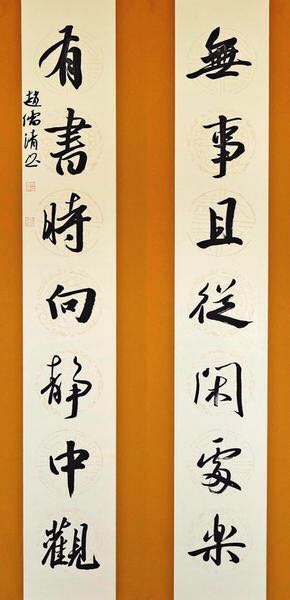 無事且從閑處樂
有書時向靜中觀
趙儒清书